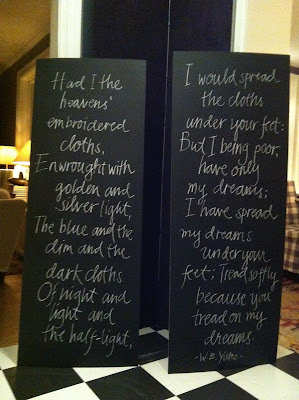 Had I the
heavens'
embroidered
cloths,
Enwrought with
golden and
silver light,
The blue and the
dim and the
dark cloths
Of night and
light and
the half-light,
I would spread
the cloths
under your feet:
But I being poor,
have only
my dreams;
I have spread
my dreams
under your
feet; Tread softly
because you
tread on my
dreams.
-W.B. Yeats-